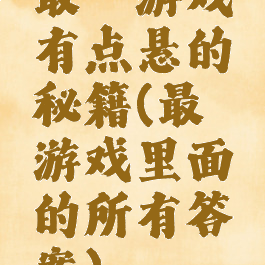 最一游戏
有点悬的
秘籍(最
游戏里面
的所有答
案)